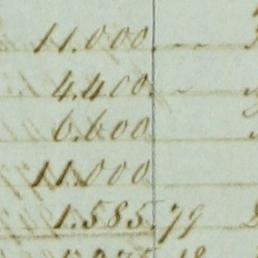 11.000
4.400
6.600
11.000
1.585.79